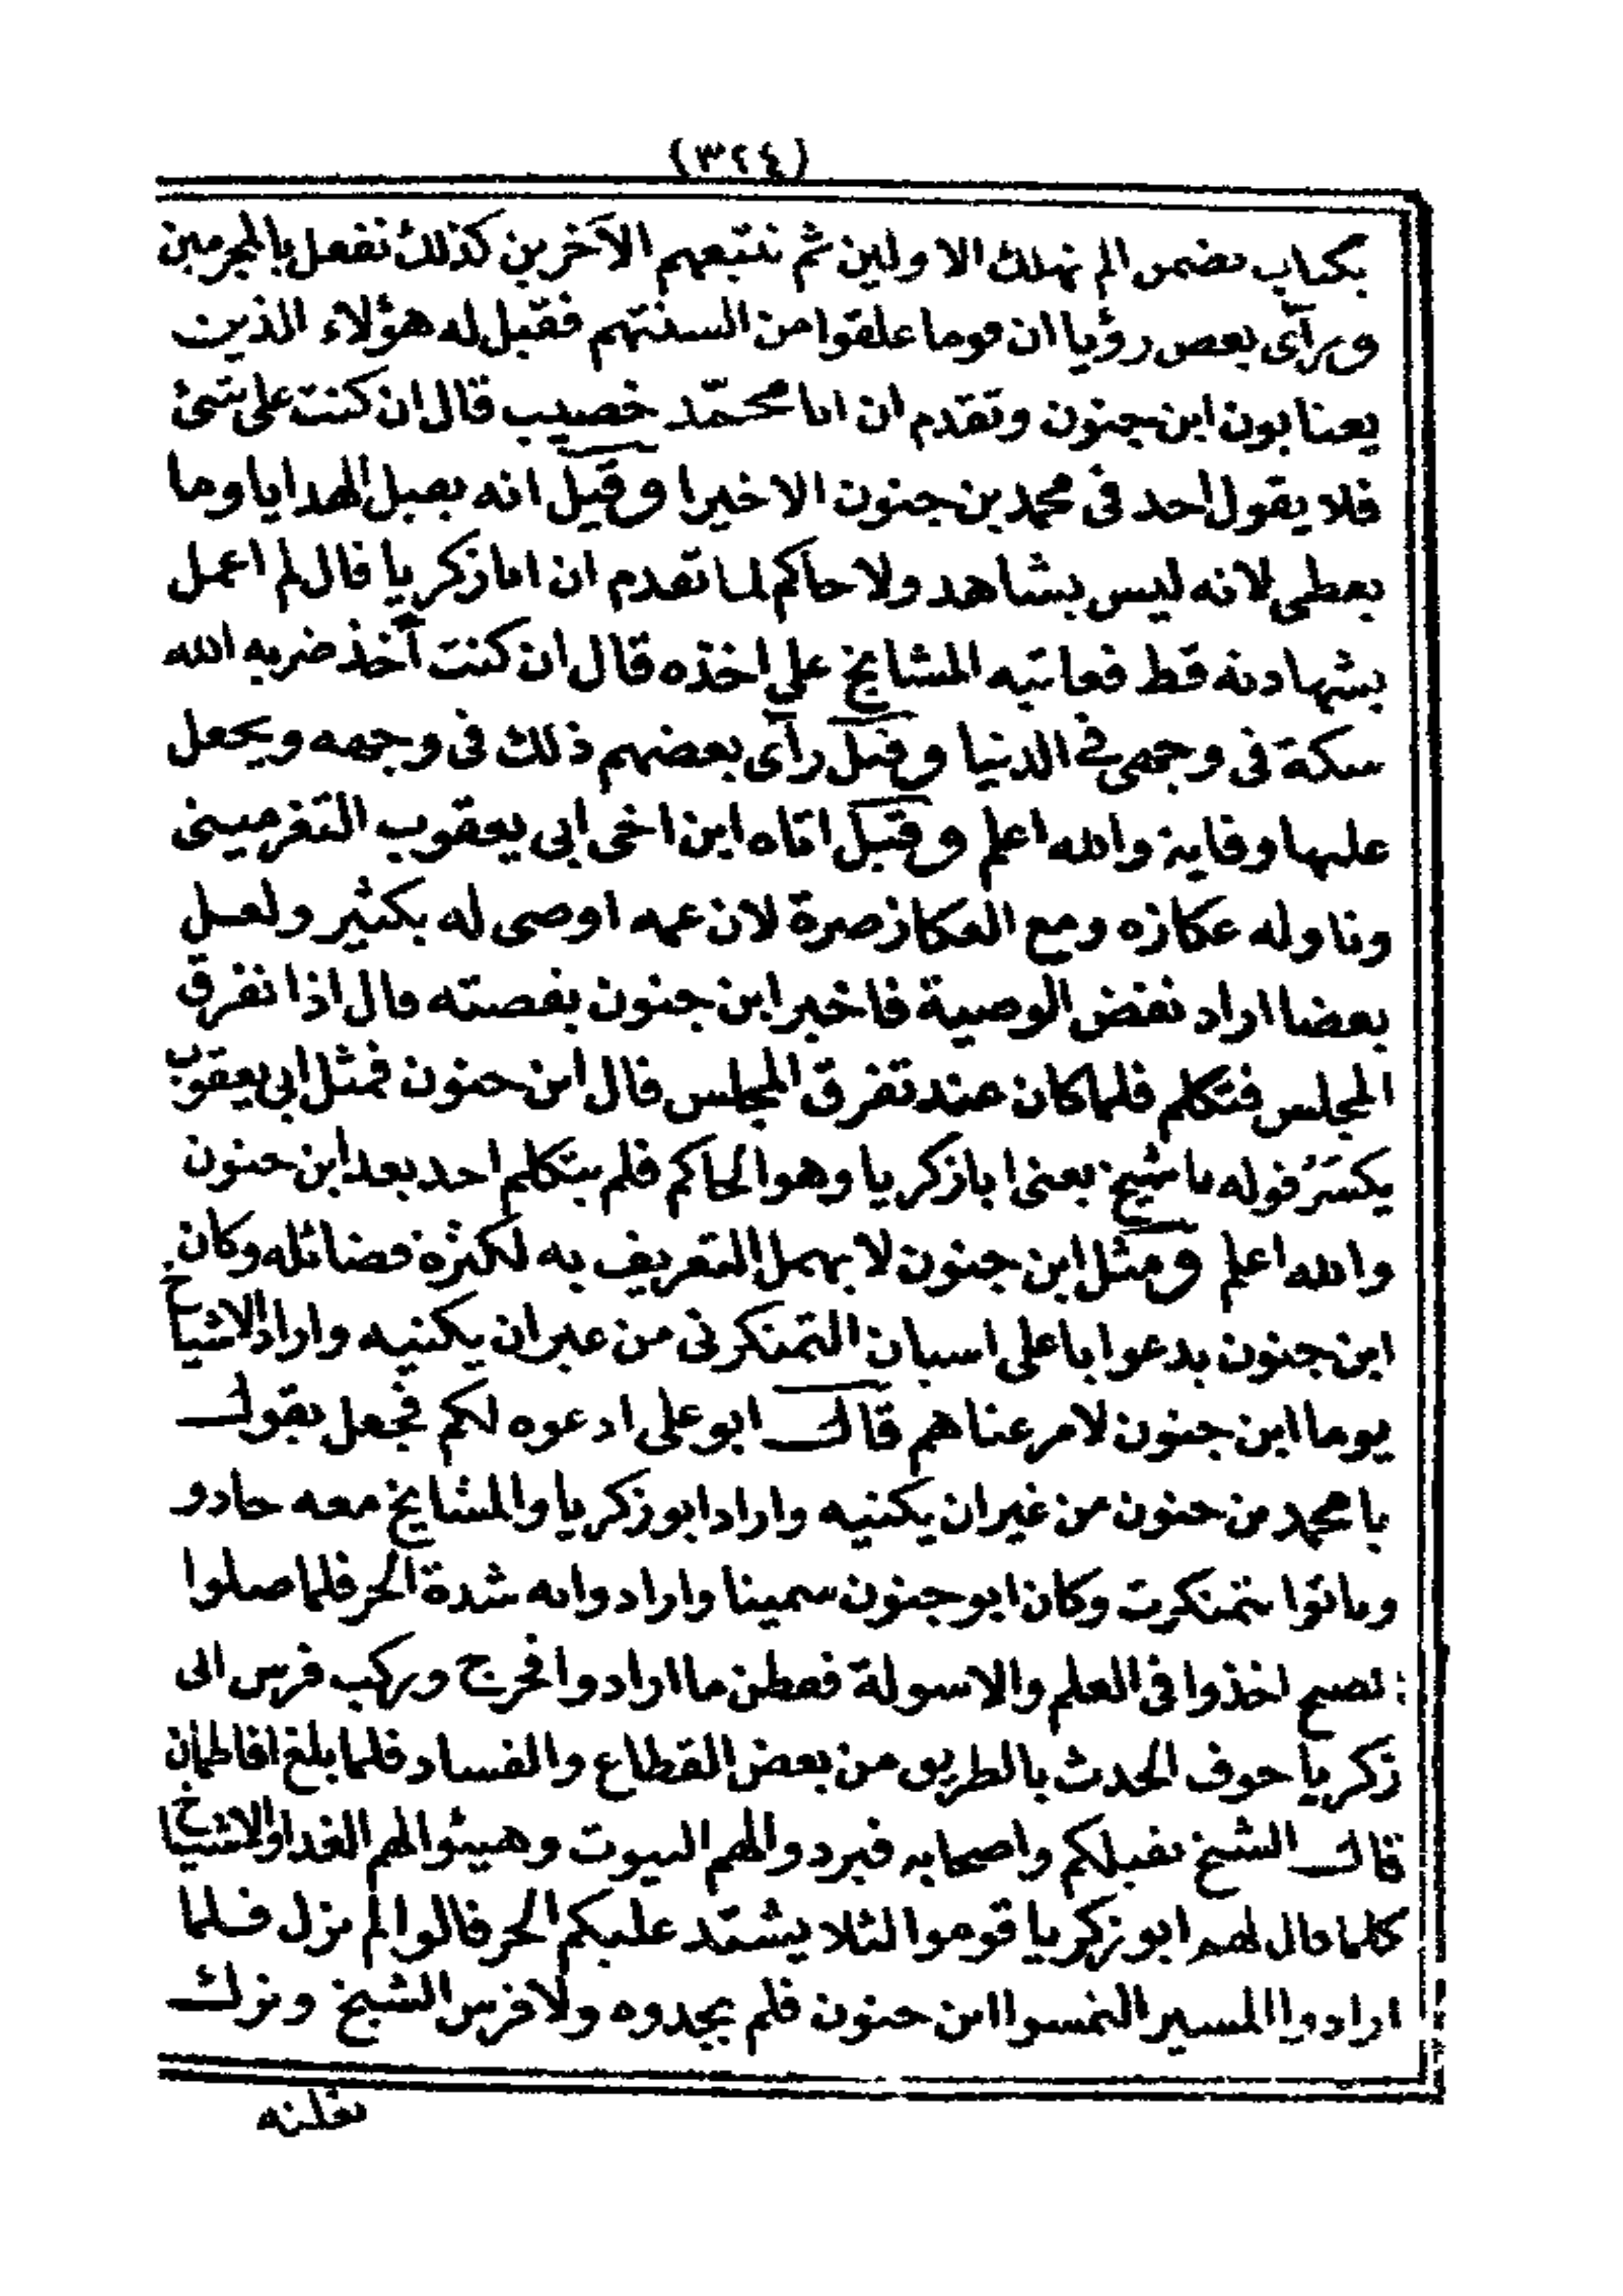 (٣٢٤)
بكتاب تضمن الم نهلك الاولين ثم نتبعهم الآخرين كذلك نفعل بالمجرمين
ورآى بعض رؤيا ان قوما علقوا من السنتهم فقيل له هؤلاء الذين
يعتابون ابن جنون وتقدم ان ابا محمّد خصيب قال ان كنت على شئ
فلا يقول احد فى محمد بن جنون الاخيرا وقيل انه يقبل الهدايا وما
يعطى لانه ليس بشاهد ولا حاكم لما تقدم ان ابا زكريا قال لم اعمل
بشهادته قط فعاتبه المشايخ على اخذه قال ان كنت آخذ ضربه الله
سكة فى وجهى فى الدنيا وقيل رآى بعضهم ذلك فى وجهه ويجعل
عليها وقاية والله اعلم وقيل اتاه ابن اخى ابى يعقوب التغرمينى
وناوله عكازه ومع العكاز صرة لان عمه اوصى له بكثير ولعل
بعضا اراد نقض الوصية فاخبر ابن جنون بقصته قال اذا تفرق
المجلس فتكلم فلما كان عند تفرق المجلس قال ابن جنون فمثل ابى يعقوب
يكسّر قوله يا شيخ يعنى ابا زكريا وهو الحاكم فلم يتكلم احد بعد ابن جنون
والله اعلم ومثل ابن جنون لا يهمل التعريف به لكثرة فضائله وكان
ابن جنون يدعوا با على اسبان التمنكرنى من غير ان يكنيه واراد الاشياخ
يوما ابن جنون لامر عناهم قال ابو على ادعوه لكم فجعل يقول
يا محمد بن جنون من غير ان يكنيه واراد ابو زكريا والمشايخ معه جادو
وباتوا بتمنكرت وكان ابو جنون سمينا وارادوا به شدة الحر فلما صلوا
الصبح اخذوا فى العلم والاسولة ففطن ما ارادوا فخرج وركب فرس ابى
زكريا خوف الحدث بالطريق من بعض القطاع والفساد فلما بلغ افاطمان
قال الشيخ نقيلكم واصحابه فبردوا لهم البيوت وهيئوا لهم الغدا والاشياخ
كلما قال لهم ابو زكريا قوموا لئلا يشتد عليكم الحر قالوا لم نزل فلما
ارادوا المسير التمسوا ابن جنون فلم يجدوه ولا فرس الشيخ وترك
نعلته